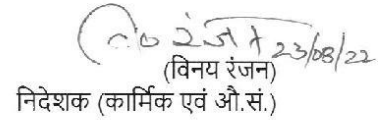 वि० रंजन 23/08/22
(विनय रंजन)
निदेशक (कार्मिक एवं औ.सं.)